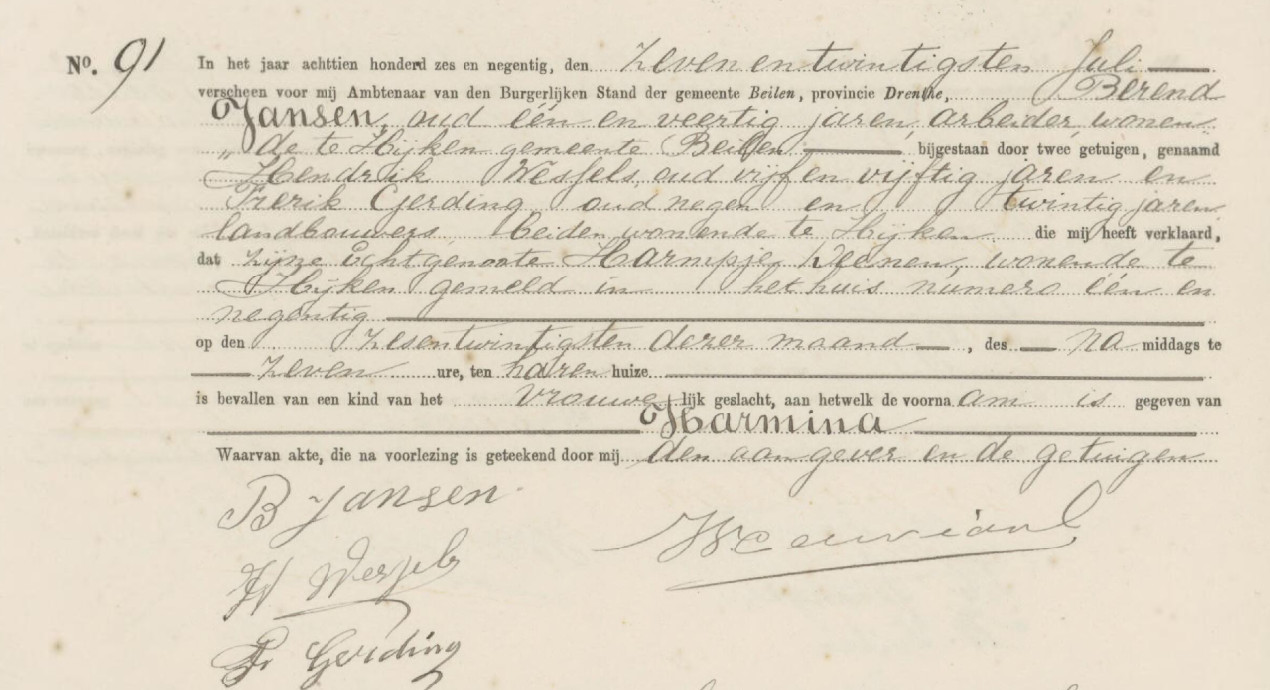 No. 91 In het jaar achttien honderd zes en negentig, den zeven en twintigsten Juli
verscheen voor mij Ambtenaar van den Burgerlijken Stand der gemeente Beilen, provincie Drenthe, Berend
Jansen, oud één en veertig jaren, arbeider, wonen
„ de te Hijken gemeente Beilen bijgestaan door twee getuigen, genaamd
Hendrik Wessels, oud vijf en vijftig jaren en
Frerik Gerding oud negen en twintig jaren
landbouwers, beiden wonende te Hijken die mij heeft verklaard,
dat zijne Echtgenoote Harmpje, wonende te
Hijken gemeld in het huis numero één en
negentig
op den zesentwintigsten dezer maand, des na middags te
zeven ure, ten haren huize
is bevallen van een kind van het vrouwe lijk geslacht, aan hetwelk de voorna am is gegeven van
Harmina
Waarvan akte, die na voorlezing is geteekend door mij den aangever en de getuigen
B Jansen
H Wessels
Fr Gerding